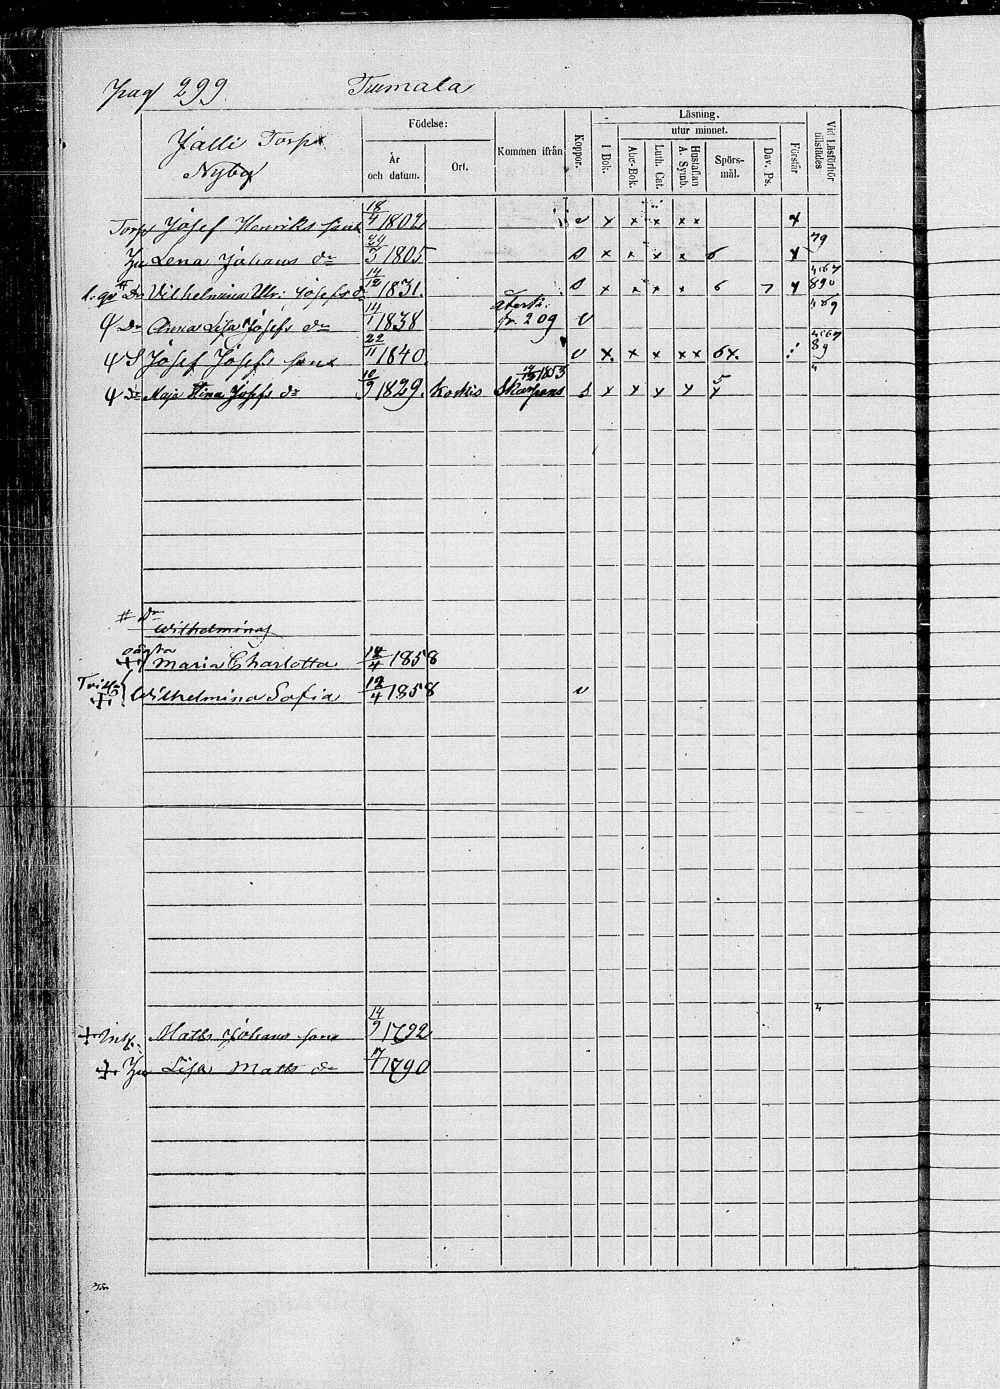 pag 299 Tumala
Jalli Torp
Nyby
Födelse:
År och datum.
Ort.
Kommen ifrån
Koppor.
Läsning.
I Bok.
utur minnet.
Abc-Bok.
Luth. Cat.
Hustaflan A. Symb.
Spörs-mål.
Dav. Ps.
Förstår
Vid Läsförhör tillstädes
Torp Josef Henriks son 18/4 1802 v x x x x x x
Hu Lena Johans dr 1805 s x x x x 6 x 79
Dr Vilhelmina Ulr: Josefs dr 14/12 1831. s x x x x 6 7 x
Dr Anna Lisa Josefs dr 14/1 1838 fr. 209 v
S Josef Josefs son 22/11 1840 v x x x x x 6 x.
Dr Maja Stina Josefs dr 10/9 1829. Koskis 1853 s x x x x 5 x
# Dr Wilhelminas
oägta
Maria Charlotta 12/4 1858
Wilhelmina Sofia 12/4 1858 v
Inh. Matts Johans son 14/9 1792
Hu Lisa Matts dr 1790